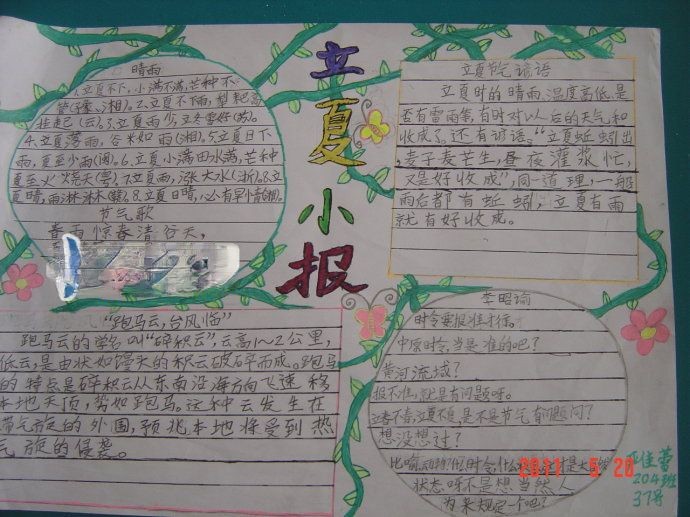 立夏小报
晴雨
1.立夏不下,小满不满,芒种不
管(豫、湘)。2.立夏不下雨,犁耙高
挂起(云)。3.立夏雨少,立冬雪好(皖)。
4.立夏落雨,谷米如雨(湘)。5.立夏日下
雨,夏至少雨(闽)。6.立夏小满田水满,芒种
夏至火烧天(粤)。7.立夏雨,涨大水(浙)。8.立
夏晴,雨淋淋 8.立夏日晴,必有旱情
节气歌
春雨惊春清谷天,
立夏节气谚语
立夏时的晴雨、温度高低、是
否有雷雨等,有时对以后的天气和
收成了。还有谚语:“立夏蚯蚓出
,麦子麦芒生,昼夜灌浆忙,
又是好收成”,同一道理,一般
雨后都有蚯蚓,立夏有雨
就有好收成。
“跑马云,台风临”
跑马云的学名叫“碎积云”,云高1~2公里,
低云,是由状如馒头的积云破碎而成。跑马
的特点是碎积云从东南沿海方向飞速移
本地天顶,势如跑马。这种云发生在
带气旋的外围,预兆本地将受到热
气旋的侵袭。
李昭瑜
时令要报准才行。
中原时令,当是准的吧?
黄河流域?
报不准,就是有问题呀。
立春不春,立夏不夏,是不是节气有问题问?
想没想过?
比喻,动物们的时令,什么 才是大自然
状态。呀不是想当然,人
为来规定一个吧?
2011 5 20
佳蕾
204班
37号